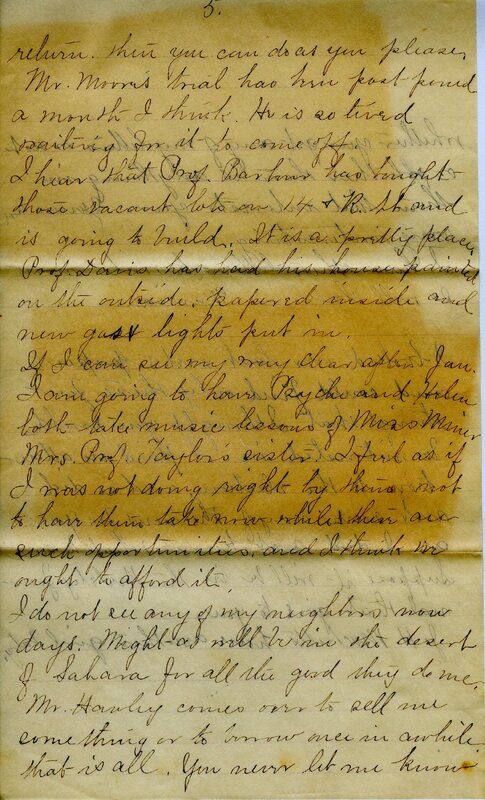 5.
return. then you can do as you please.
Mr. Morris trial has been post poned
a month I think. He is so tired
waiting for it to come off.
I hear that Prof. Barbour has bought
those vacant lots on 14 & R. St. and
is going to build. It is a pretty place.
Prof. Davis has had his house painted
on the outside. papered inside and
new gast lights put in.
If I can see my way clear after Jan.
I am going to have Psyche and Helen
both take music lessons of Miss Miner
Mrs. Prof. Taylor's sister. I feel as if
I was not doing right by them not
to have them take now while there are
such opportunities. and I think we
ought to afford it.
I do not see any of my neighbors now
days. Might as well be in the desert
of Sahara for all the good they do me.
Mr. Hawley comes over to sell me
something or to borrow once in awhile
that is all. You never let me know